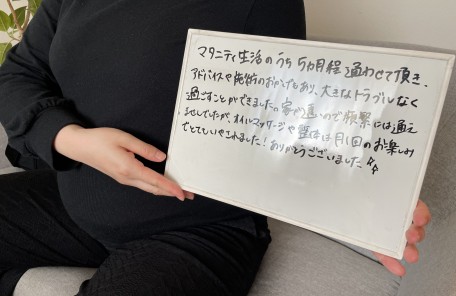 マタニティ生活のうち5カ月程通わせて頂き、
アドバイスや施術のおかげもあり、大きなトラブルなく
過ごすことができました。家が遠いので頻繁には通え
ませんでしたが、オイルマッサージや整体は月1回のお楽しみ
でとてもいやされました！ありがとうございました